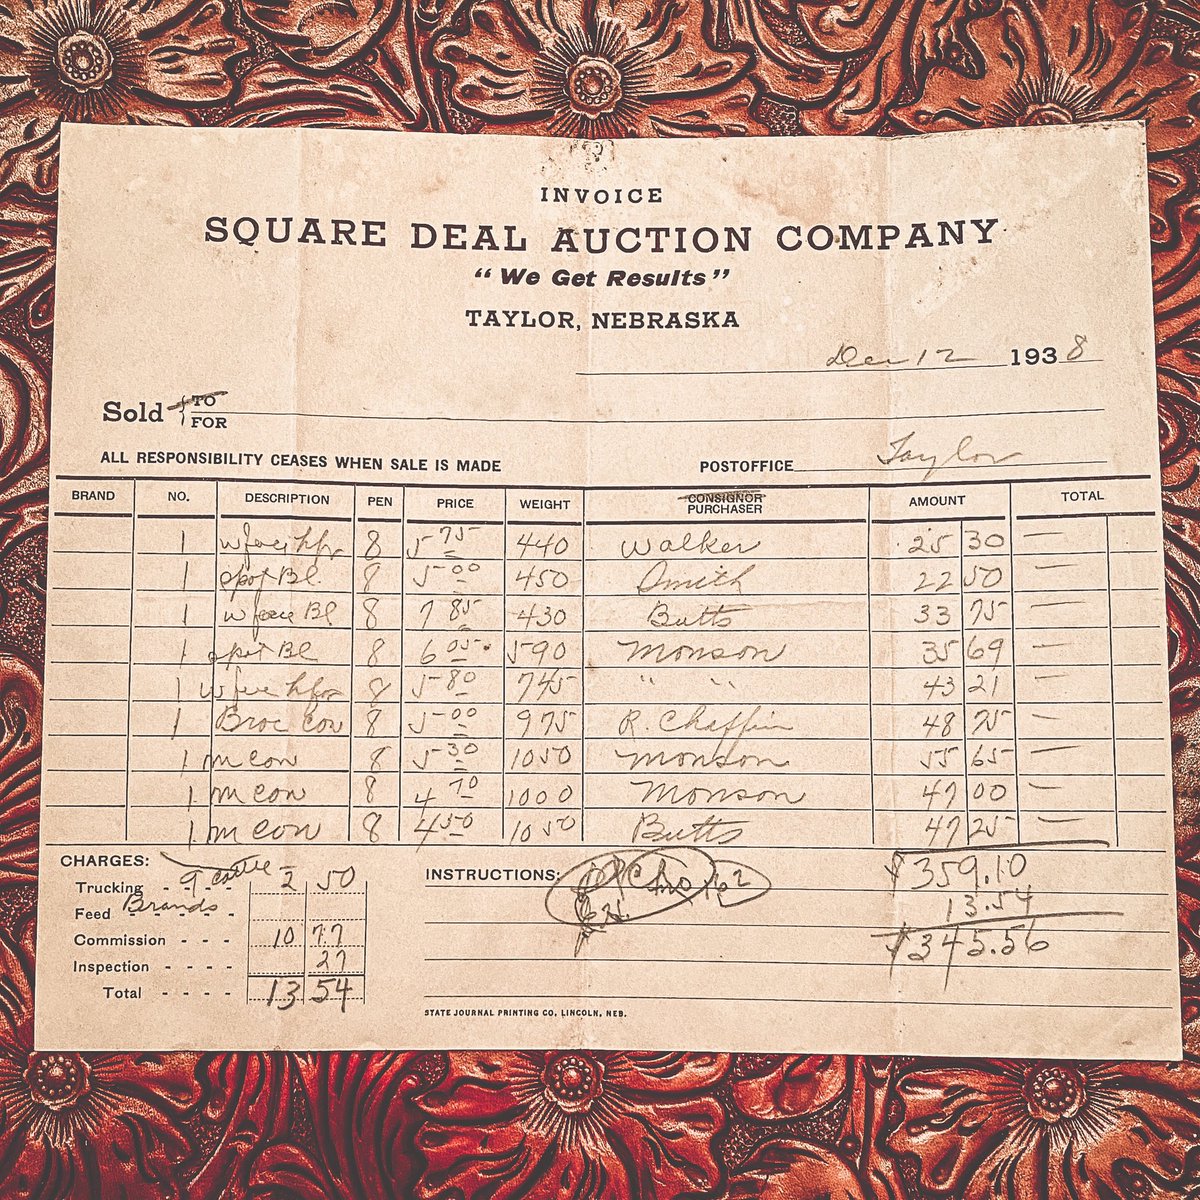 INVOICE
SQUARE DEAL AUCTION COMPANY
"We Get Results"
TAYLOR, NEBRASKA
Dec 12 1938
Sold { TO
FOR
ALL RESPONSIBILITY CEASES WHEN SALE IS MADE POSTOFFICE Taylor
BRAND NO. DESCRIPTION PEN PRICE WEIGHT CONSIGNOR PURCHASER AMOUNT TOTAL
1 w face hfr 8 5 75 440 Walker 25 30 —
1 spot Bl. 8 5 00 450 Smith 22 50 —
1 w face Bl 8 7 85 430 Butts 33 75 —
1 spot Bl 8 6 05 590 Monson 35 69 —
1 w face hfr 8 5 80 745 " " 43 21 —
1 Broc Cow 8 5 00 975 R. Chaffin 48 75 —
1 m cow 8 5 30 1050 Monson 55 65 —
1 m cow 8 4 70 1000 Monson 47 00 —
1 m cow 8 4 50 1050 Butts 47 25 —
CHARGES: 9 cattle INSTRUCTIONS: $359.10
Trucking - - - - 2 50
13.54
Feed - - - - Brands
$345.56
Commission - - - 10 77
Inspection - - - - 27
Total - - - - 13 54
STATE JOURNAL PRINTING CO, LINCOLN, NEB.